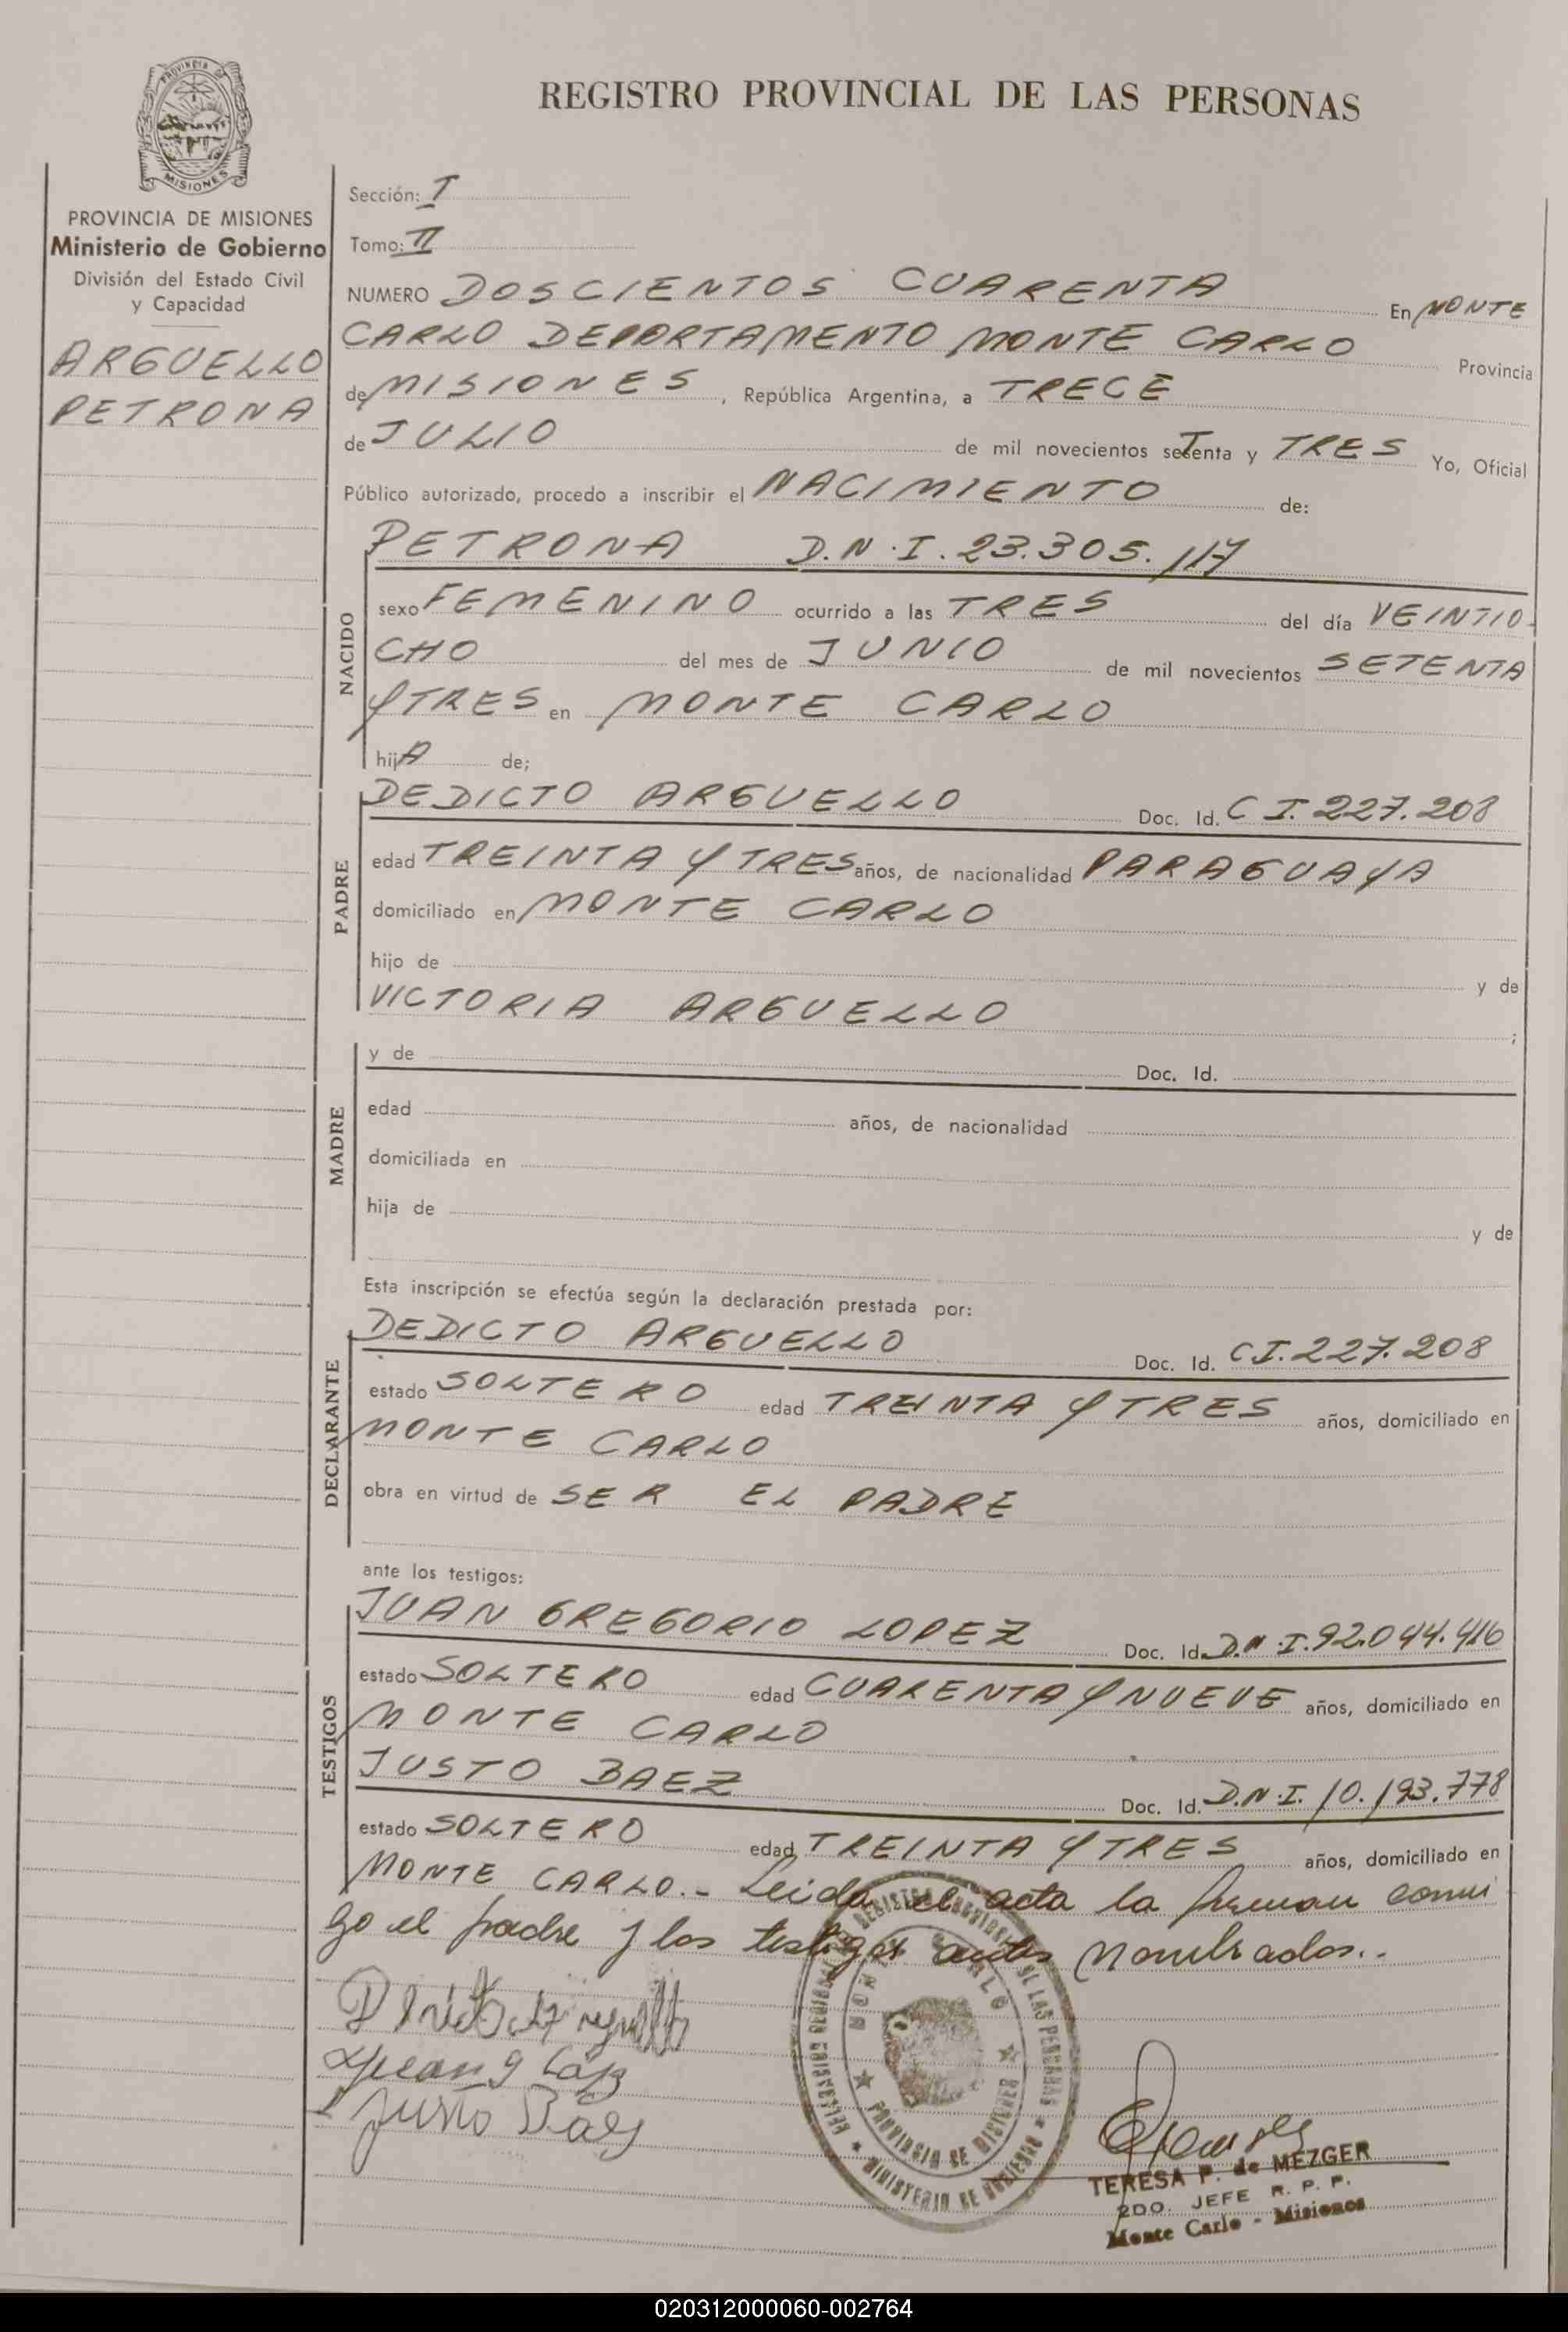 REGISTRO PROVINCIAL DE LAS PERSONAS
PROVINCIA DE
MISIONES
PROVINCIA DE MISIONES
Ministerio de Gobierno
División del Estado Civil
y Capacidad
ARGUELLO
PETRONA
Sección: I
Tomo: II
NUMERO DOSCIENTOS CUARENTA En MONTE
CARLO DEPARTAMENTO MONTE CARLO Provincia
de MISIONES, República Argentina, a TRECE
de JULIO de mil novecientos setenta y TRES Yo, Oficial
Público autorizado, procedo a inscribir el NACIMIENTO de:
NACIDO
PETRONA D.N.I. 23.305.117
sexo FEMENINO ocurrido a las TRES del día VEINTIO-
CHO del mes de JUNIO de mil novecientos SETENTA
Y TRES en MONTE CARLO
hijA de;
PADRE
DEDICTO ARGUELLO Doc. Id. C I. 227.208
edad TREINTA Y TRES años, de nacionalidad PARAGUAYA
domiciliado en MONTE CARLO
hijo de y de
VICTORIA ARGUELLO ;
MADRE
y de Doc. Id.
edad años, de nacionalidad
domiciliada en
hija de y de
Esta inscripción se efectúa según la declaración prestada por:
DECLARANTE
DEDICTO ARGUELLO Doc. Id. C I. 227.208
estado SOLTERO edad TREINTA Y TRES años, domiciliado en
MONTE CARLO
obra en virtud de SER EL PADRE
ante los testigos:
TESTIGOS
JUAN GREGORIO LOPEZ Doc. Id. D.N.I. 92.044.416
estado SOLTERO edad CUARENTA Y NUEVE años, domiciliado en
MONTE CARLO
JUSTO BAEZ Doc. Id. D.N.I. 10.193.778
estado SOLTERO edad TREINTA Y TRES años, domiciliado en
MONTE CARLO.- Leida el acta la firman conmi
go el padre y los testigos antes nombrados..
Juan G López
Justo Baez
MONTE CARLO
PROVINCIA DE MISIONES
MINISTERIO DE GOBIERNO
TERESA P. de MEZGER
2DO. JEFE R. P. P.
Monte Carlo - Misiones
020312000060-002764